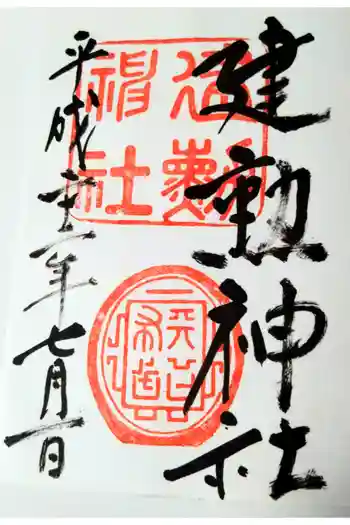 建勲神社
建勲
神社
平成二十二年七月一日